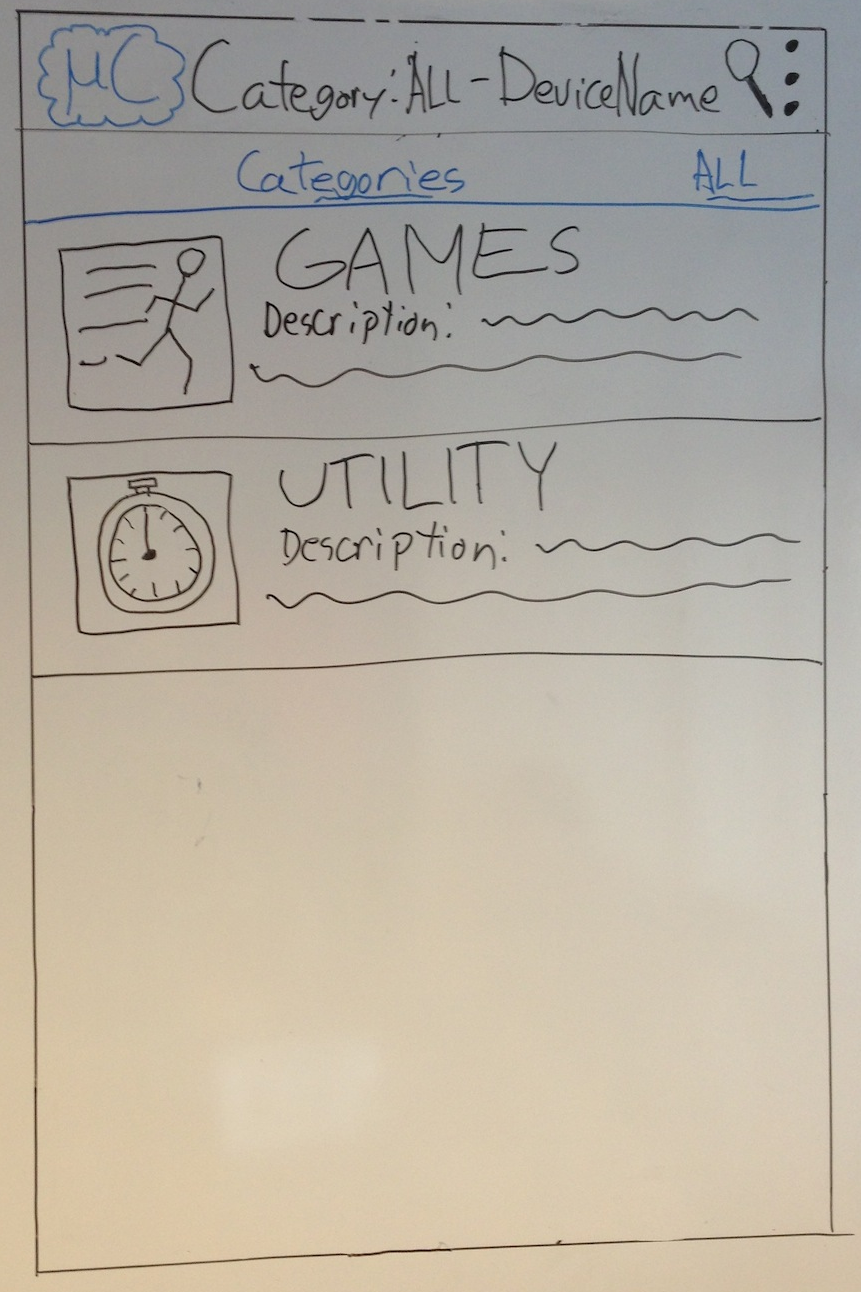 µC Category: ALL - DeviceName
Categories ALL
GAMES
Description:
UTILITY
Description: